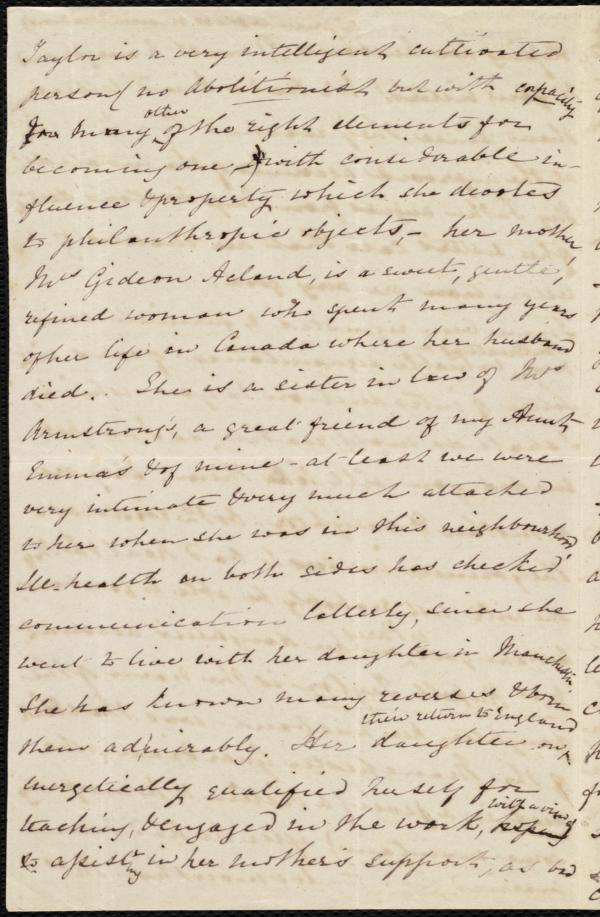 Taylor is a very intelligent cultivated
person (no abolitionist but with capacity
other
for many of the right elements for
becoming one,) with considerable in-
fluence & property which she devotes
to philanthropic objects, - her mother,
Mrs Gideon Acland, is a sweet, gentle,
refined woman who spent many years
of her life in Canada where her husband
died. She is a sister in law of Mrs
Armstrong's, a great friend of my Aunt
Emma's & of mine - at least we were
very intimate & very much attached
to her when she was in this neighbourhood
Ill-health on both sides has checked
communication latterly, since she
went to live with her daughter in Manchester.
She has known many reverses & born
their return to England
them admirably. Her daughter on
energetically qualified herself for
with a view
teaching, & engaged in the work,
to assisting in her mother's support, as od